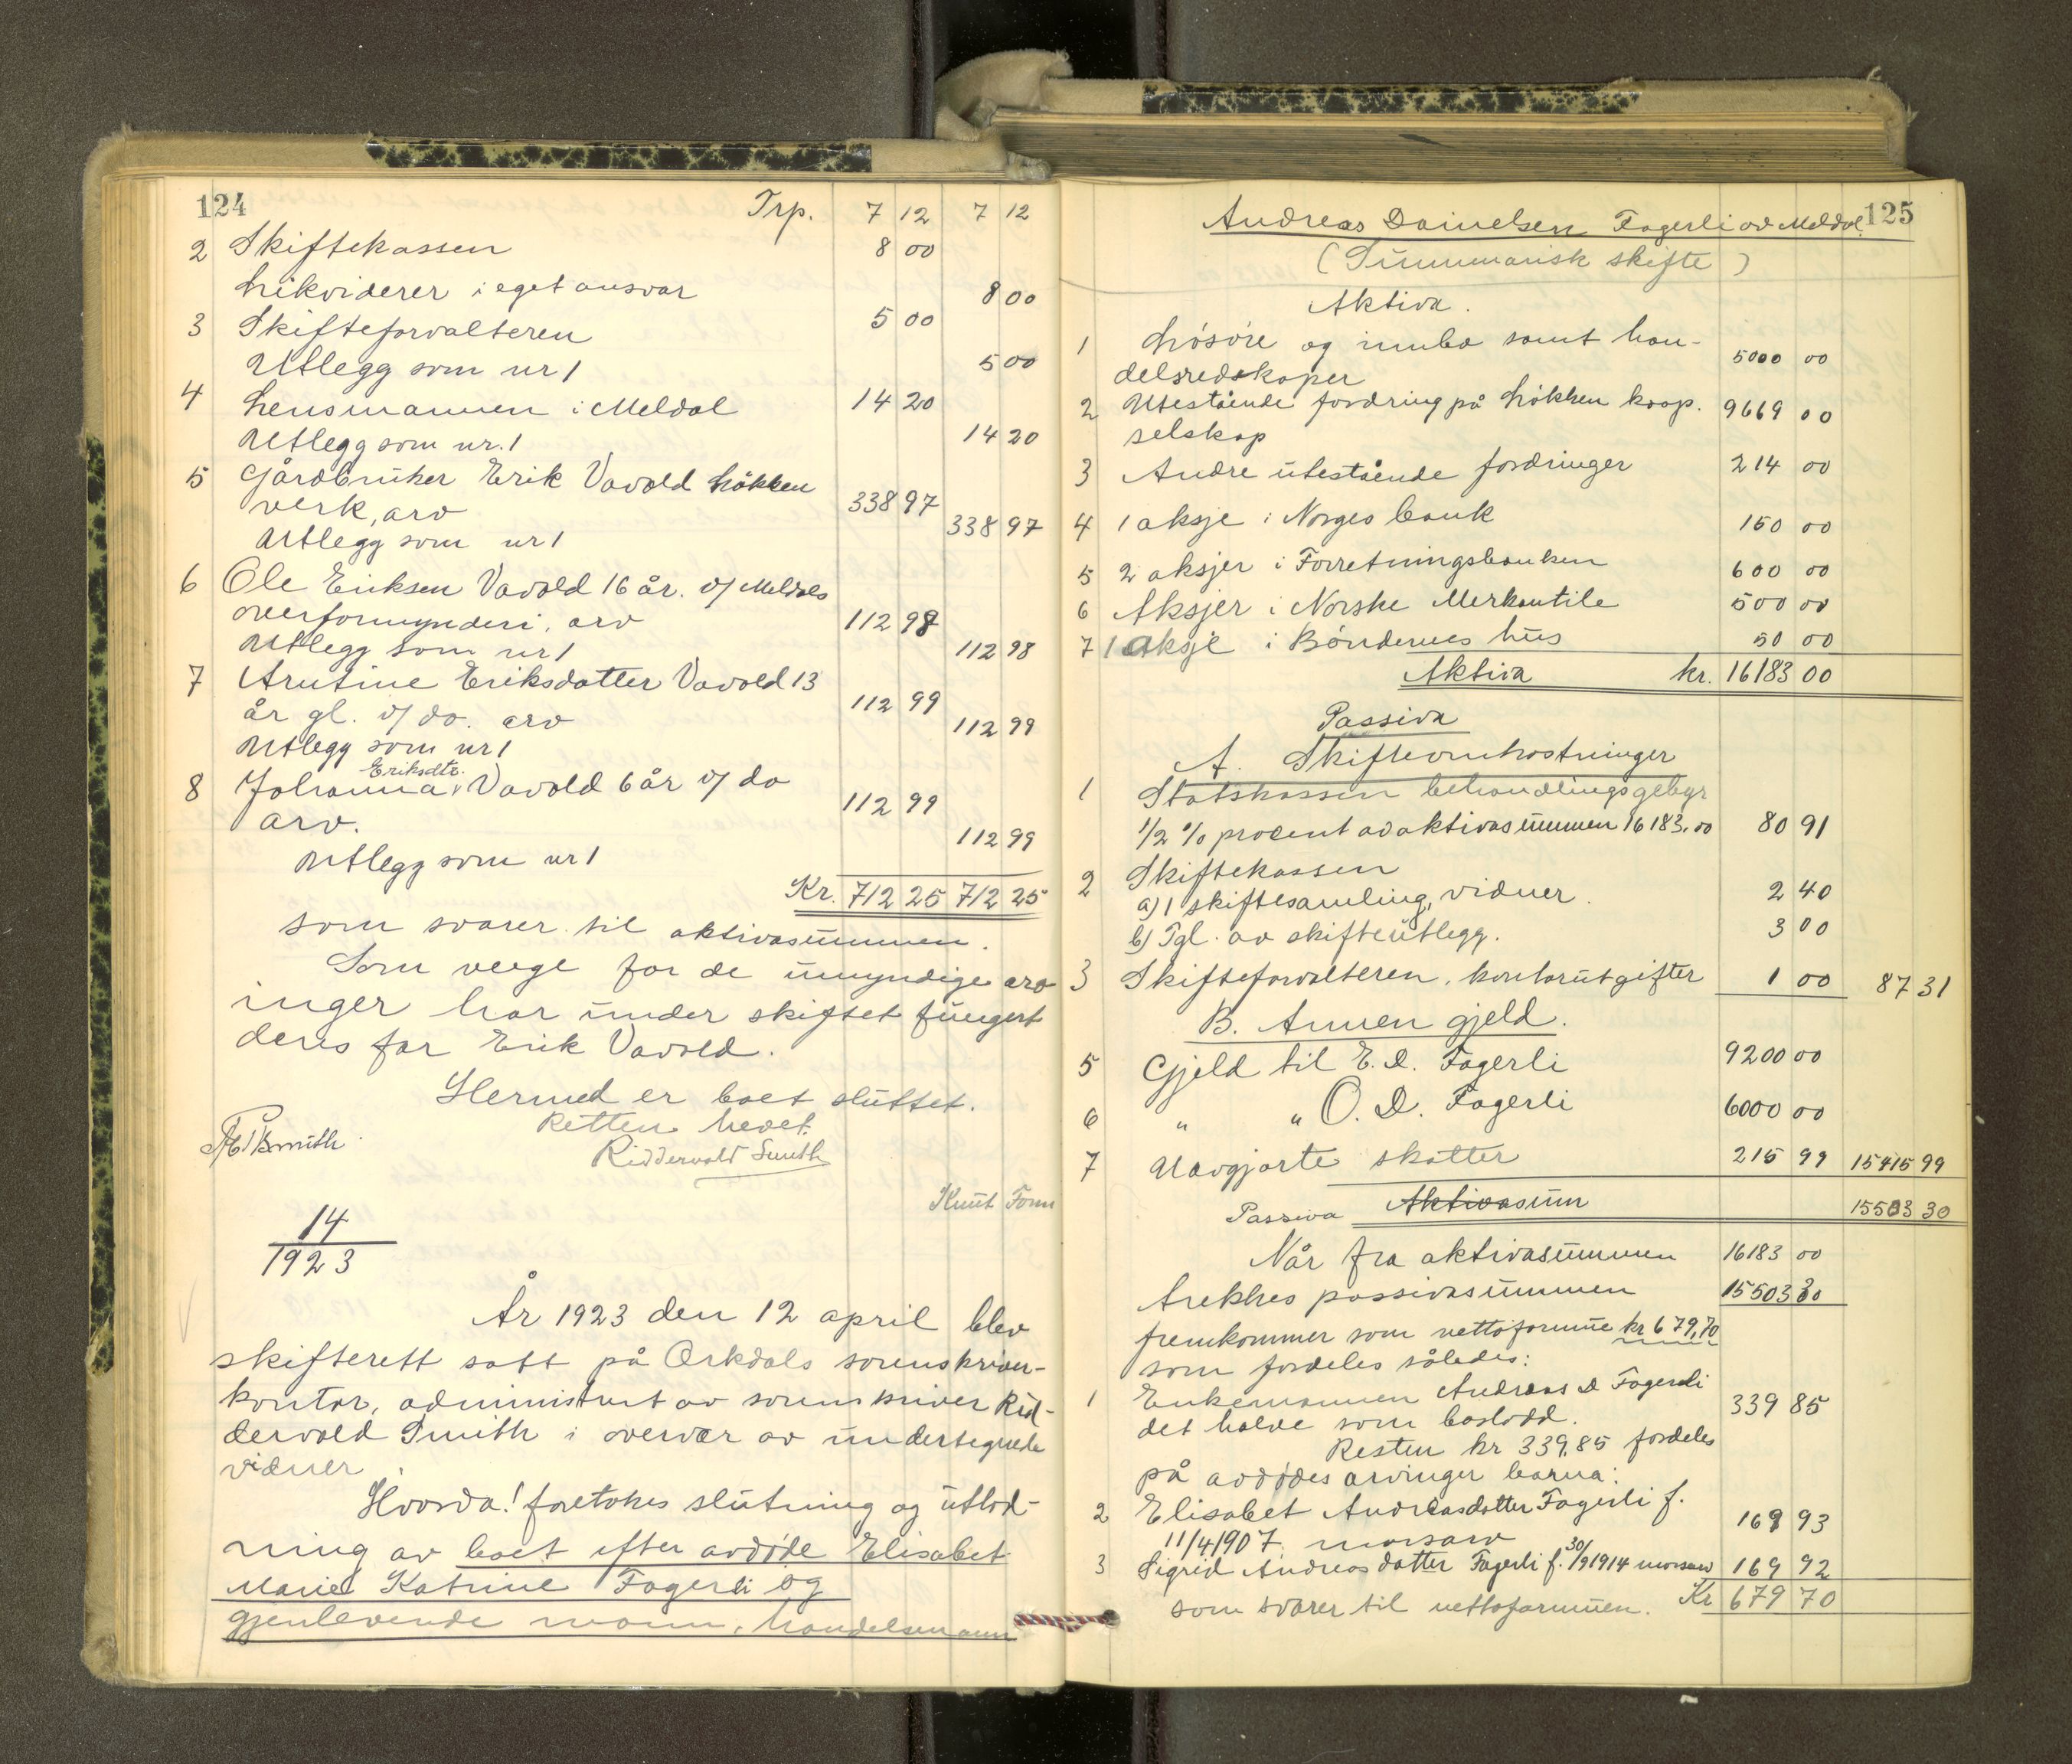 124
Trp. 7 12 7 12
2 Skiftekassen 8 00
Likviderer i eget ansvar 8 00
3 Skifteforvalteren 5 00
Utlegg som nr 1 5 00
4 Lensmannen i Meldal 14 20
Utlegg som nr. 1 14 20
5 Gårdbruker Erik Vavold Løkken
verk, arv 338 97
Utlegg som nr 1 338 97
6 Ole Eriksen Vavold 16 år. v/ Meldals
overformynderi, arv 112 98
Utlegg som nr 1 112 98
7 Arntine Eriksdatter Vavold 13
år gl. v/ do. arv 112 99
Utlegg som nr 1 112 99
8 Johanna Eriksdtr. Vavold 6 år v/ do
arv. 112 99
Utlegg som nr 1 112 99
Kr. 712 25 712 25
som svarer til aktivasummen.
Som verge for de umyndige arv
inger har under skiftet fungert
deres far Erik Vavold.
Hermed er boet sluttet.
Retten hevet.
Riddervold Smith
Knut Fonn
14
1923
År 1923 den 12 april blev
skifterett satt på Orkdals sorenskriver-
kontor, administrert av sorenskriver Rid-
dervold Smith i overvær av undertegnede
vidner
Hvorda! foretokes slutning og utlod-
ning av boet efter avdøde Elisabet
Marie Katrine Fagerli og
gjenlevende mann, handelsmann
125
Andreas Dainelsen Fagerli av Meldal.
(Summarisk skifte)
Aktiva.
1 Løsøre og innbo samt han-
delsredskaper 5000 00
2 Utestående fordring på Løkken koop.
selskap 9669 00
3 Andre utestående fordringer 214 00
4 1 aksje i Norges bank 150 00
5 2 aksjer i Forretningsbanken 600 00
6 Aksjer i Norske Merkantile 500 00
7 1 aksje i Bøndernes hus 50 00
Aktiva kr. 16183 00
Passiva
A. Skifteomkostninger
1 Statskassen behandlingsgebyr
1/2 % procent av aktivasummen 16183.00 80 91
2 Skiftekassen
a) 1 skiftesamling, vidner. 2 40
b) Tgl. av skifteutlegg. 3 00
3 Skifteforvalteren, kontorutgifter 1 00 87 31
B. Annen gjeld.
5 Gjeld til E. D. Fagerli 9200 00
6 " " O. D. Fagerli 6000 00
7 Uavgjorte skatter 215 99 15415 99
Passiva Aktivasum 15503 30
Når fra aktivasummen 16183 00
trekkes passivasummen 15503 30
fremkommer som nettoformue kr 679,70
som fordeles således:
1 Enkemannen Andreas D Fagerli
det halve som boslodd. 339 85
Resten kr 339,85 fordeles
på avdødes arvinger barna:
2 Elisabet Andreasdatter Fagerli f.
11/4/1907. morsarv 169 93
3 Sigrid Andreasdatter Fagerli f. 30/9 1914 morsarv 169 92
som svarer til nettoformuen. Kr 679 70